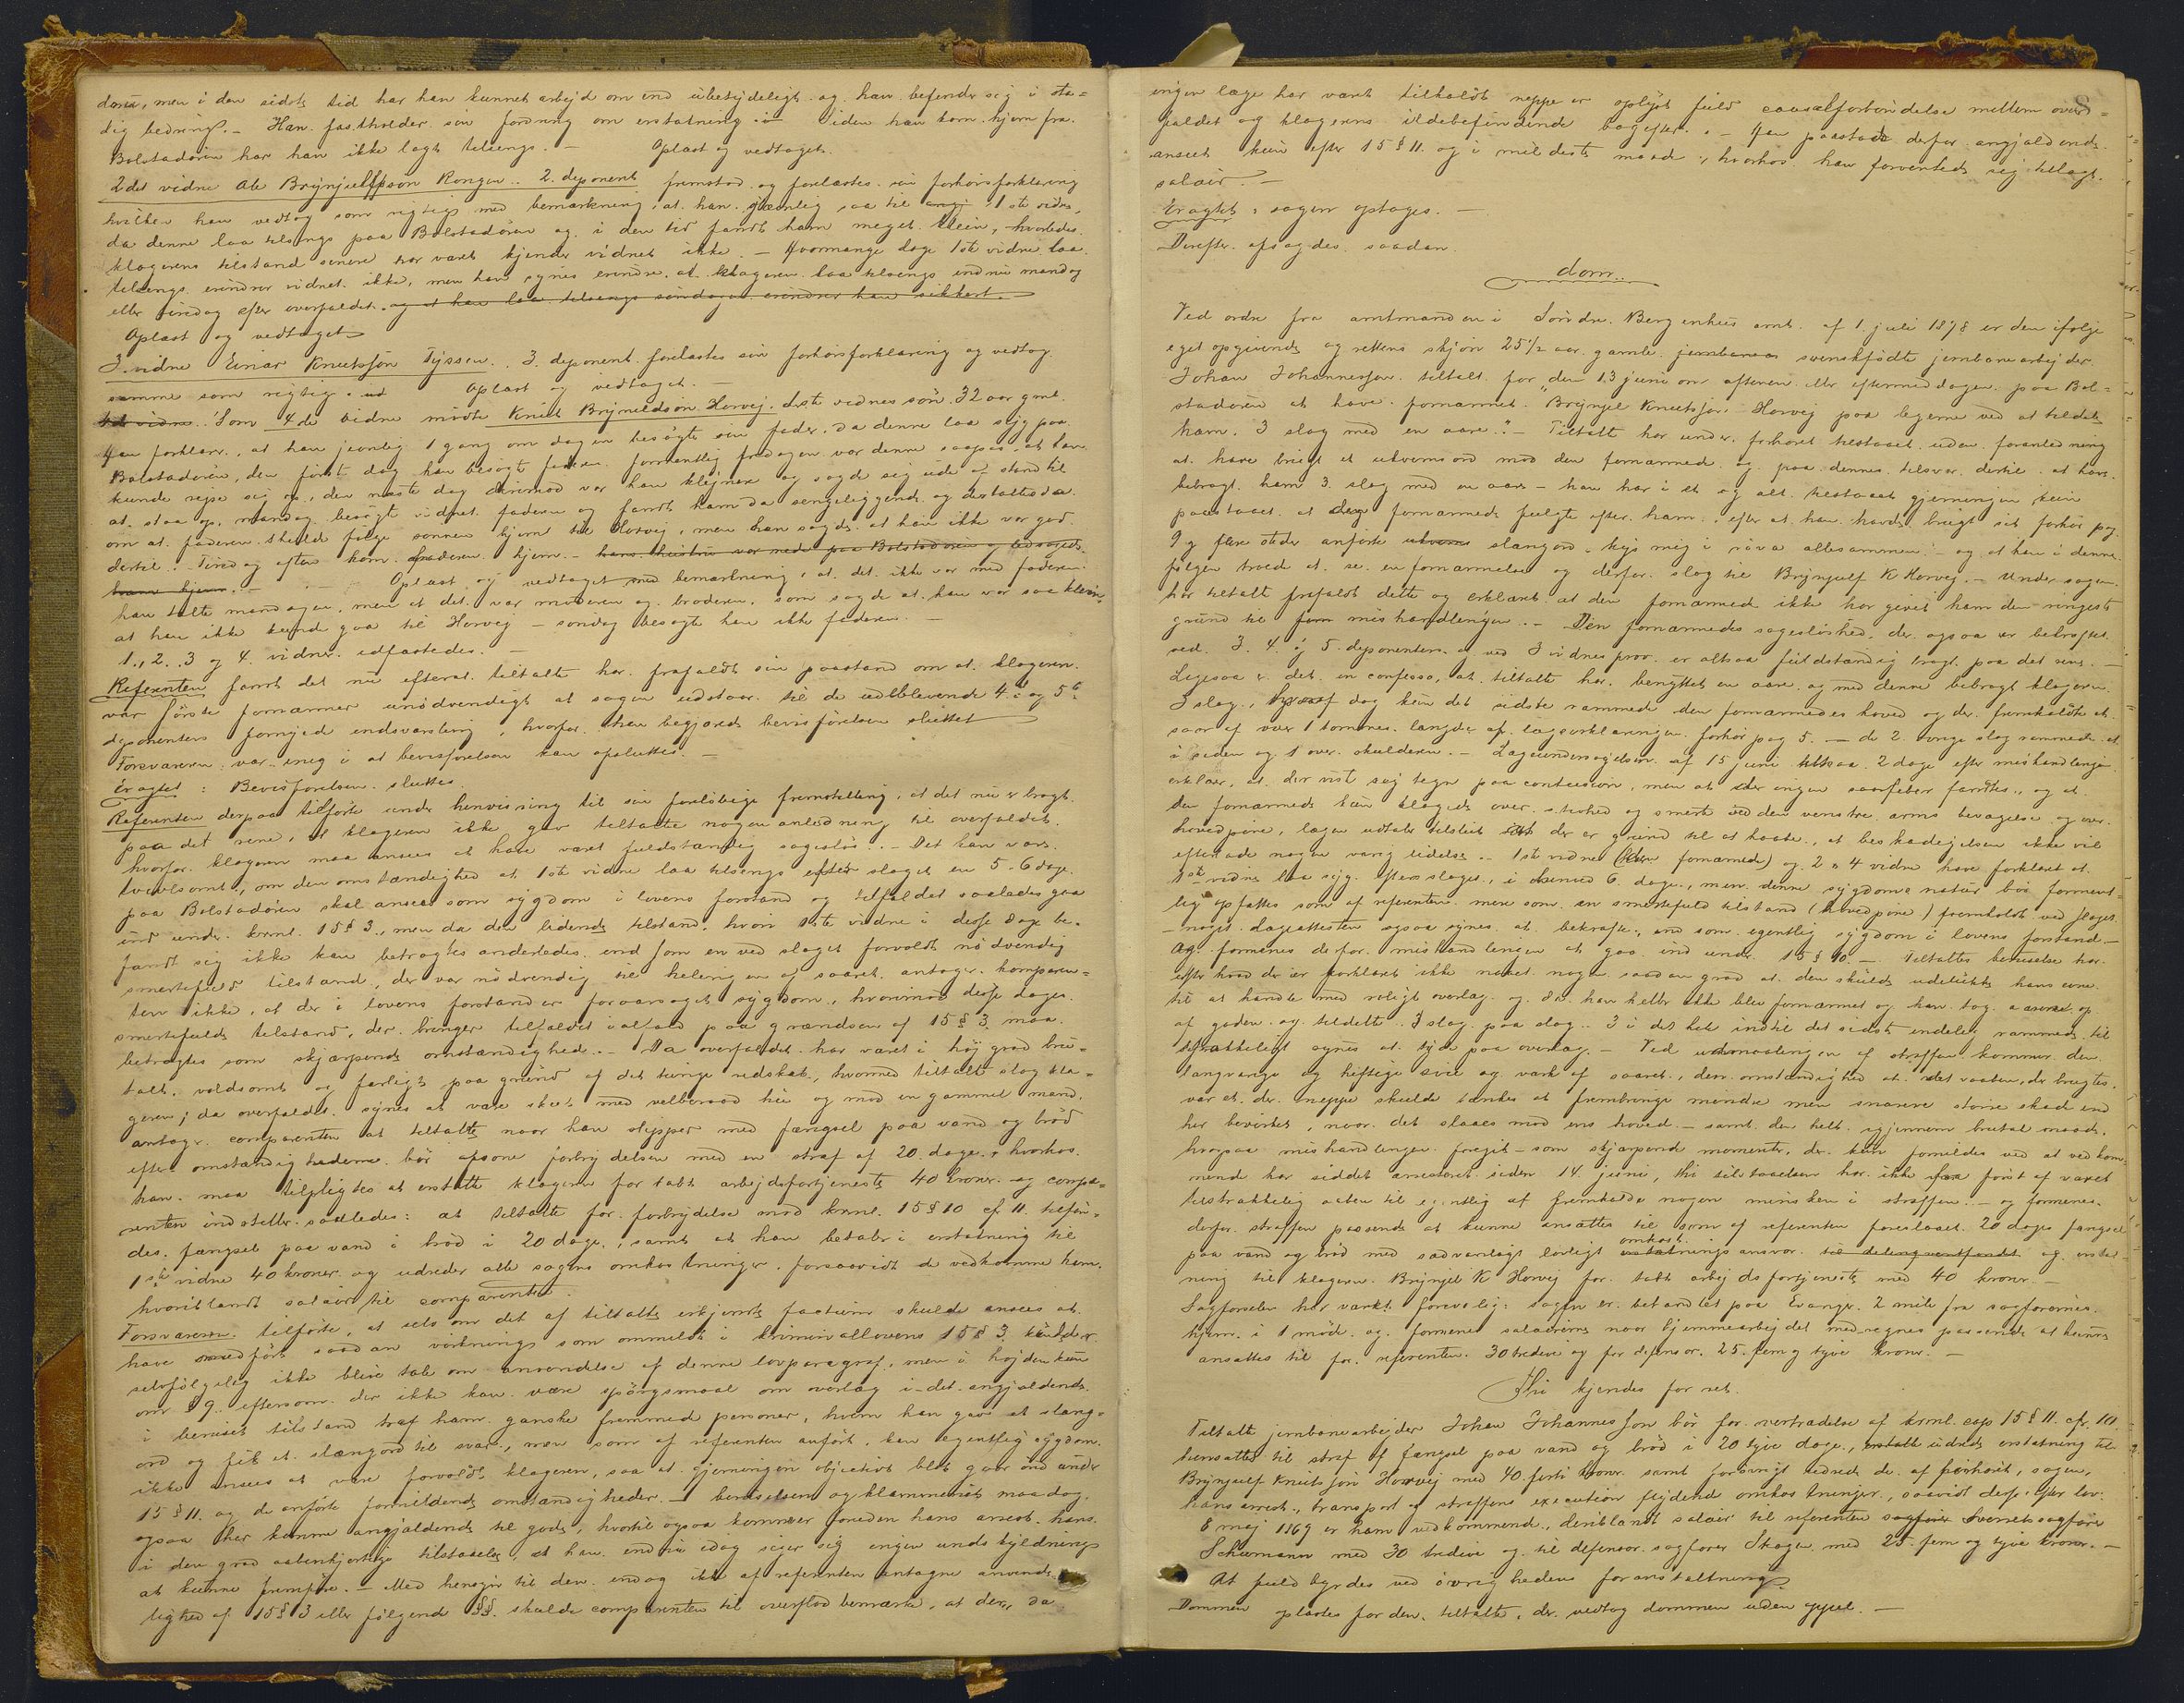 denne, men i den sidste tid har han kunnet arbejde om end ubetydeligt og han befinder sig i sta-
dig bedring. – Han fastholder sin fordring om erstatning. – siden han kom hjem fra
Bolstadören har han ikke lagt tilsengs. – Oplæst og vedtaget.
2det vidne Ole Brynjulfssøn Rongen. 2. deponent fremstod og forelæstes sin forhørsforklaring
hvilken han vedtog som rigtig med bemærkning, at han jævnlig saa til 1ste vidne,
da denne laa tilsengs paa Bolstadören og i den tid fandt ham meget klein, hvorledes
klagerens tilstand senere har været kjender vidnet ikke. – Hvormange dage 1ste vidne laa
tilsengs erindrer vidnet ikke, men han synes erindre, at klageren laa tilsengs endnu mandag
eller tirsdag efter overfaldet. og at han laa tilsengs søndagen erindrer han sikkert. –
Oplæst og vedtaget
3. vidne Einar Knutssøn Tyssen. 3. deponent forelæstes sin forhørsforklaring og vedtog
samme som rigtig. Oplæst og vedtaget. –
4de vidne. Som 4de vidne mødte Knud Brynildsøn Horvej. 1ste vidnes søn 32 aar gml.
Han forklarer, at han jevnlig 1 gang om dagen besøgte sin fader, da denne laa syg paa
Bolstadören, den første dag han besøgte faderen formentlig fredagen var denne saapas, at han
kunde rejse sig op, den næste dag derimod var han klejnere og sagde sig ude af stand til
at staa op, mandag besøgte vidnet faderen og fandt ham da sengeliggende og der taltes da
om at faderen skulde følge sønnen hjem til Horvej, men han sagde, at han ikke var god
dertil. Tirsdag aften kom faderen hjem. – hans hustru var nede paa Bolstadören og ledsagede
ham hjem. – Oplæst og vedtaget med bemærkning, at det ikke var med faderen
han talte mandagen, men at det var moderen og broderen, som sagde at han var saa klein,
at han ikke kunde gaa til Horvej – søndag besøgte han ikke faderen. –
1., 2., 3 og 4. vidner edfæstedes. –
Referenten fandt det nu efterat tiltalte har frafaldt sin paastand om at klageren
var første fornærmer unødvendigt at sagen udstaar til de udeblevende 4de og 5te
deponenters fornyede indvarsling, hvorfor han begjærede bevisførelsen sluttet
Forsvareren var enig i at bevisførelsen kan afsluttes. –
Eragtet: Bevisførelsen sluttes
Referenten derpaa tilførte under henvisning til sin foreløbige fremstilling, at det nu er bragt
paa det rene, at klageren ikke gav tiltalte nogen anledning til overfaldet
hvorfor klageren maa ansees at have været fuldstændig sagesløs. – Det kan være
tvivlsomt, om den omstændighed at 1ste vidne laa tilsengs efter slaget en 5-6 dage
paa Bolstadören skal ansees som sygdom i lovens forstand og tilfældet saaledes gaa
ind under kriml. 15 § 3, men da den lidende tilstand, hvori 1ste vidne i disse dage be-
fandt sig ikke kan betragtes anderledes end som en ved slaget forvoldt nödvendig
smertefuld tilstand, der var nödvendig til helingen af saaret antager komparen-
ten ikke, at der i lovens forstand er foraarsaget sygdom, hvorimod disse dages
smertefulde tilstand, der bringer tilfældet ialfald paa grændsen af 15 § 3 maa
betragtes som skjærpende omstændighed. – Da overfaldet har været i høj grad bru-
talt, voldsomt og farligt paa grund af det tunge redskab, hvormed tiltalte slog kla-
geren; da overfaldet synes at være skeet med velberaad hu og mod en gammel mand,
antager comparenten at tiltalte naar han slipper med fængsel paa vand og brød
efter omstændighederne bør afsone forbrydelsen med en straf af 20 dage, hvorhos
han maa tilpligtes at erstatte klageren for tabt arbejdsfortjeneste 40 kroner og compa-
renten indstiller saaledes: at tiltalte for forbrydelse mod kriml. 15 § 10 cf 11 tilfin-
des fængsel paa vand i brød i 20 dage, samt at han betaler i erstatning til
1ste vidne 40 kroner og udreder alle sagens omkostninger forsaavidt de vedkomme ham,
hvoriblandt salair til comparenten.
Forsvareren tilførte, at selv om det af tiltalte erkjendte factum skulde ansees at
have medført saadan virkning som ommeldt i kriminallovens 15 § 3 kunde der
selvfølgelig ikke blive tale om anvendelse af denne lovparagraf, men i højden kun
om § 9 eftersom der ikke kan være spørgsmaal om overlæg i det angjældende
i beruset tilstand traf ham ganske fremmed personer, hvem han gav et slang-
ord og fik et slængord til svar, men som af referenten anført, kan egentlig sygdom
ikke ansees at være forvoldt klageren, saa at gjerningen objectivt blot gaar ind under
15 § 11 og de anførte formildende omstændigheder. – berusелsen og klammeriet maa dog
ogsaa her komme angjældende til gode, hvortil ogsaa kommer foruden hans arrest, hans
i den grad aabenhjertige tilstaaelse, at han endnu idag siger sig ingen undskyldning
at kunne fremføre. – Med hensyn til den endog ikke af referenten antagne anvende-
lighed af 15 § 3 eller følgende §§ skulde comparenten til overflod bemærke, at der, da
8
ingen læge har været tilkaldt neppe er oplyst fuld causalforbindelse mellem over-
faldet og klagerens ildebefindende bagefter. – Han paastod derfor angjældende
anseet kun efter 15 § 11 og i mildeste maade, hvorhos han forventede sig tillagt
salair. –
Eragtet: sagen optages. –
Derefter afsagdes saadan
dom.
Ved ordre fra amtmanden i Söndre Bergenhus amt af 1. juli 1878 er den ifølge
eget opgivende og rettens skjøn 25½ aar gamle svenskfødte jernbanearbejder
Johan Johannessen tiltalt for „den 13 juni om aftenen eller eftermiddagen paa Bol-
stadören at have fornærmet Brynjel Knutssøn Horvej paa legeme ved at tildele
ham 3 slag med en aare." – Tiltalte har under forhøret tilstaaet uden foranledning
at have brugt et ukvemsord mod den fornærmede og paa dennes tilsvar dertil at have
bibragt ham 3 slag med en aare – han har i et og alt tilstaaet gjerningen kun
paastaaet at den fornærmede fulgte efter ham, efter at han havde brugt sit forhør pag
9 g flere steder anførte slængord „kys mig i röva allesammen" – og at han i denne
følgen troede at se en fornærmelse og derfor slog til Brynjulf K Horvej. – Under sagen
har tiltalt frafaldt dette og erklæret at den fornærmede ikke har givet ham den ringeste
grund til mishandlingen. – Den fornærmedes sagesløshed, der ogsaa er bekræftet
ved 3. 4. og 5 deponenters og ved 3 vidnes prov er altsaa fuldstændig bragt paa det rene. –
Ligesaa er det in confesso, at tiltalte har benyttet en aare og med denne bibragt klageren
3 slag, hvoraf dog kun det sidste rammede den fornærmedes hoved og der fremkaldte et
saar af over 1 tommes længde cf. lægeerklæringen forhør pag 5. – de 2 øvrige slag rammede et
i siden og 1 over skulderen. – Lægeundersøgelsen af 15 juni altsaa 2 dage efter mishandlingen
erklær, at der vist sig tegn paa contusion, men at der ingen saarfeber fandtes, og at
den fornærmede kun klagede over stivhed og smerte ved den venstre arms bevægelse og over
hovedpine, lægen udtaler tilslut at der er grund til at haabe, at beskadigelsen ikke vil
efterlade nogen varig lidelse. – 1ste vidne (den fornærmede) og 2 og 4 vidne have forklaret at
1ste vidne laa syg efter slaget, i domed 6 dage, men denne sygdoms natur bør forment-
lig opfattes som af referenten mere som en smertefuld tilstand (hovedpine) fremkaldt ved slaget
– noget lægeattesten ogsaa synes at bekræfte, end som egentlig sygdom i lovens forstand –
og formenes derfor mishandlingen at gaa ind under 15 § 10. – Tiltaltes beruselse har
efter hvad der er forklaret ikke naaet nogen saadan grad at den skulde udelukke hans evne
til at handle med roligt overlæg og da han heller ikke blev fornærmet og han tog aaren op
af gaden og tildelte 3 slag paa slag. 3 i det hele indtil det sidste endelig rammede til
tilstrækkeligt synes at tyde paa overlæg. – Ved udmaalingen af straffen kommer den
langvarige og heftige svie og værk af saaret, den omstændighed at det vaaben, der brugtes,
var et der neppe skulde tænkes at frembringe mindre men snarere større skade end
her bevirket, naar det slaaes mod ens hoved – samt den helt igjennem brutale maade
hvorpaa mishandlingen foregik – som skjærpende momenter, der kun formildes ved at vedkom-
mende har siddet arresteret siden 14 juni, thi tilstaaelsen har ikke fra først af været
tilstrækkelig aaben til egentlig at fremkalde nogen minsken i straffen – og formenes
derfor straffen passende at kunne ansættes til som af referenten foreslaaet 20 dages fængsel
paa vand og brød med sædvanligt lovligt omkost-ningsansvar til delinqventfondet og erstat-
ning til klageren Brynjel K Horvej for tabt arbejdsfortjeneste med 40 kroner. –
Sagførselen har været forsvarlig: sagen er behandlet paa Evanger 2 mile fra sagførernes
hjem i 1 møde og formenes salairerne naar hjemmearbejdet medregnes passende at kunne
ansættes til for referenten 30 tredive og for defensor 25 fem og tyve kroner. –
Thi kjendes for ret
Tiltalte jernbanearbejder Johan Johannessøn bør for overtrædelse af kriml. cap 15 § 11 cfr. 10
hensættes til straf af fængsel paa vand og brød i 20 tyve dage, udrede erstatning til
Brynjulf Knutssøn Horvej med 40 forti kroner samt forøvrigt udrede de af forhørt, sagen,
hans arrest, transport og straffens execution flydende omkostninger, saavidt disse efter lov
8 maj 1869 er ham vedkommende, deriblandt salair til referenten overretssagfører
Schumann med 30 tredive og til defensor sagfører Skagen med 25 fem og tyve kroner. –
At fuldbyrdes ved øvrighedens foranstaltning.
Dommen oplæstes for den tiltalte, der vedtog dommen uden appel. –